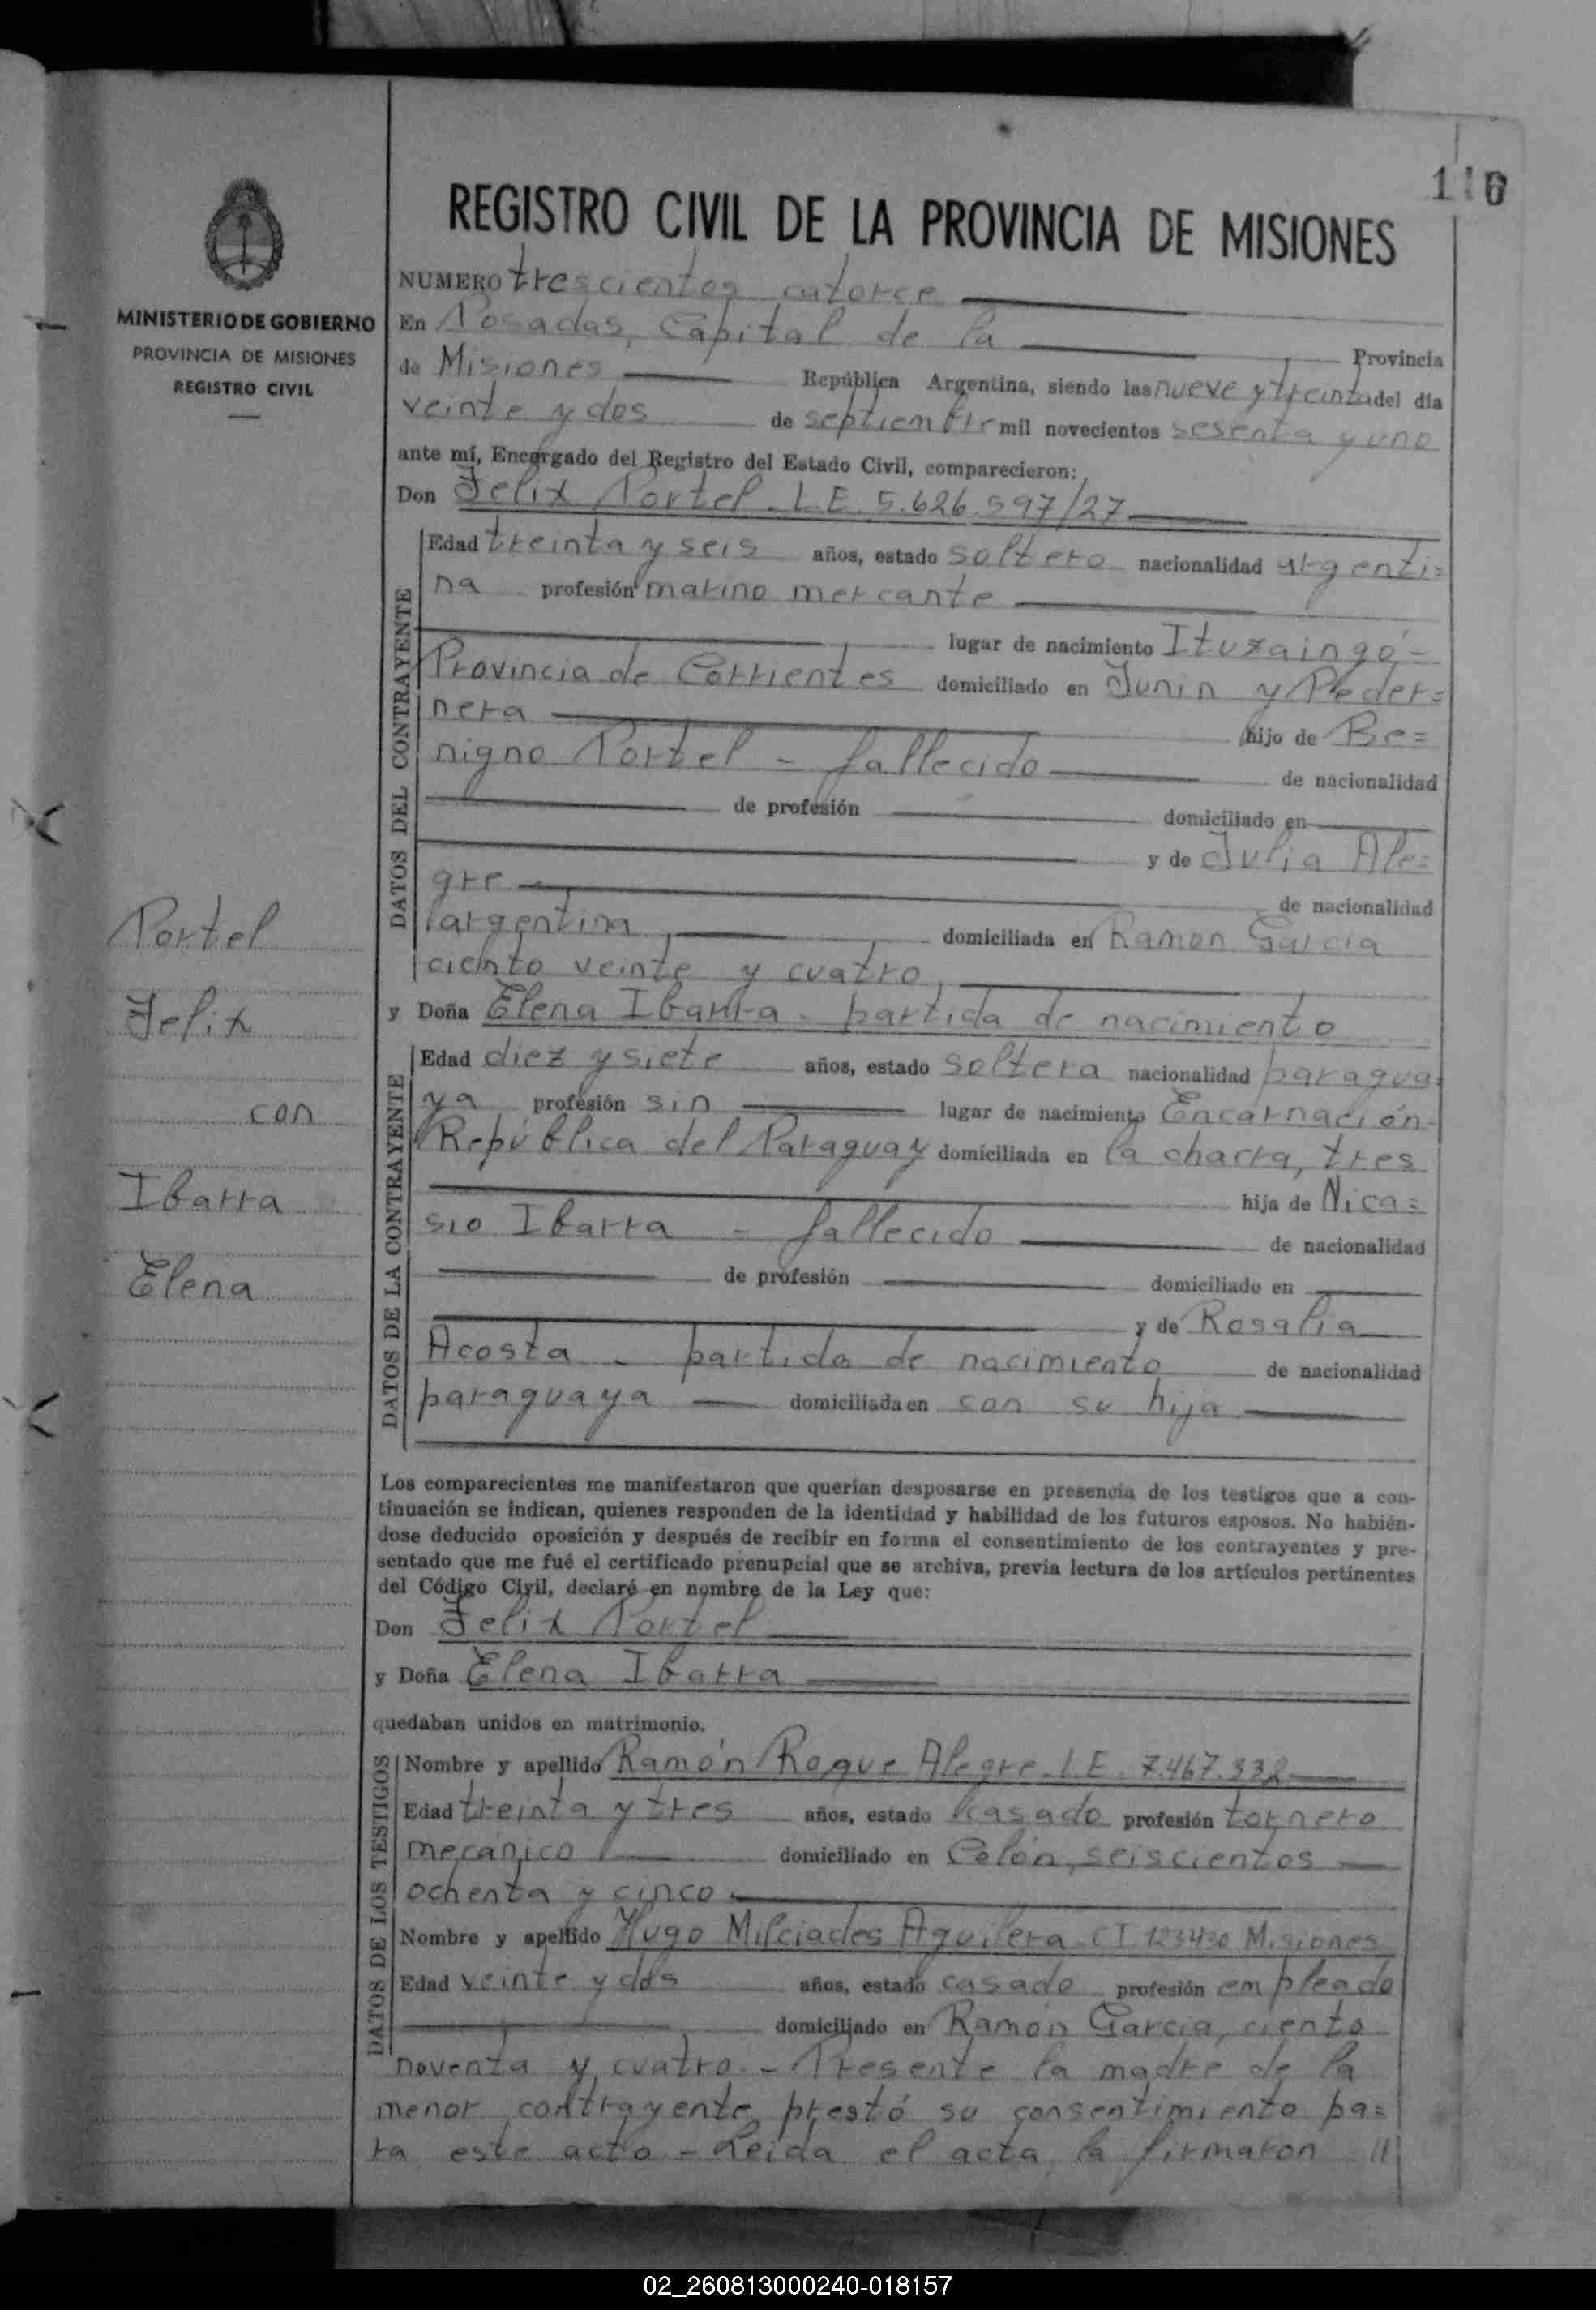 116
REGISTRO CIVIL DE LA PROVINCIA DE MISIONES
MINISTERIO DE GOBIERNO
PROVINCIA DE MISIONES
REGISTRO CIVIL
NUMERO trescientos catorce
En Posadas, Capital de la Provincia
de Misiones República Argentina, siendo las nueve y treinta del día
veinte y dos de septiembre mil novecientos sesenta y uno
ante mí, Encargado del Registro del Estado Civil, comparecieron:
Don Felix Portel - L.E. 5.626.597/27
DATOS DEL CONTRAYENTE
Edad treinta y seis años, estado soltero nacionalidad argenti=
na profesión marino mercante
lugar de nacimiento Ituzaingó -
Provincia de Corrientes domiciliado en Junin y Peder=
nera hijo de Be=
nigno Portel - fallecido de nacionalidad
de profesión domiciliado en
y de Julia Ale=
gre de nacionalidad
argentina domiciliada en Ramon Garcia
ciento veinte y cuatro
y Doña Elena Ibarra - partida de nacimiento
DATOS DE LA CONTRAYENTE
Edad diez y siete años, estado soltera nacionalidad paragua=
ya profesión sin lugar de nacimiento Encarnación -
República del Paraguay domiciliada en la chacra, tres
hija de Nica=
sio Ibarra - fallecido de nacionalidad
de profesión domiciliado en
y de Rosalia
Acosta - partida de nacimiento de nacionalidad
paraguaya domiciliada en con su hija
Portel
Felix
con
Ibarra
Elena
Los comparecientes me manifestaron que querían desposarse en presencia de los testigos que a con-
tinuación se indican, quienes responden de la identidad y habilidad de los futuros esposos. No habién-
dose deducido oposición y después de recibir en forma el consentimiento de los contrayentes y pre-
sentado que me fué el certificado prenupcial que se archiva, previa lectura de los artículos pertinentes
del Código Civil, declaré en nombre de la Ley que:
Don Felix Portel
y Doña Elena Ibarra
quedaban unidos en matrimonio.
DATOS DE LOS TESTIGOS
Nombre y apellido Ramón Roque Alegre - L.E. 7.467.332
Edad treinta y tres años, estado casado profesión tornero
mecánico domiciliado en Colón, seiscientos
ochenta y cinco
Nombre y apellido Hugo Milciades Aguilera - C.I. 123430 Misiones
Edad veinte y dos años, estado casado profesión empleado
domiciliado en Ramón Garcia, ciento
noventa y cuatro. - Presente la madre de la
menor contrayente prestó su consentimiento pa=
ra este acto - Leida el acta la firmaron //
02_260813000240-018157